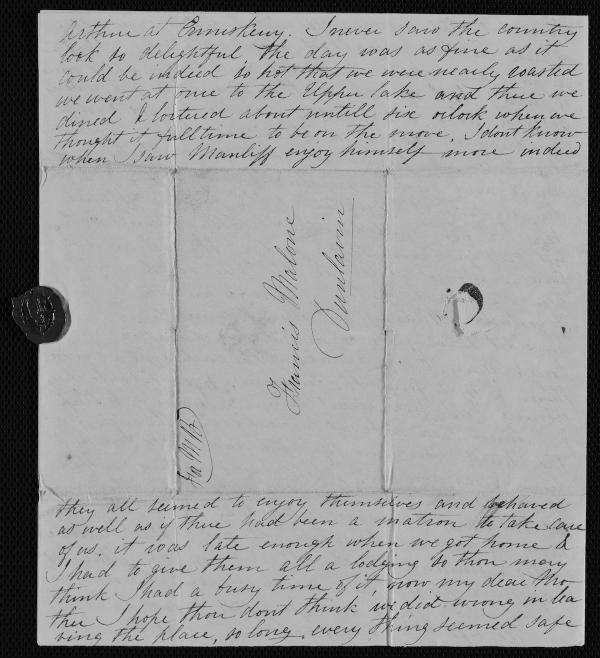 Arthur at Enniskery. I never saw the country
look so delightful, the day was as fine as it
could be indeed so hot that we were nearly roasted
we went at once to the Upper lake and there we
dined & loitered about untill six oclock when we
thought it full time to be on the move, I dont know
when I saw Manliff enjoy himself more indeed
Francis Malone
Dunlavin
they all seemed to enjoy themselves and behaved
as well as if there had been a matron to take care
of us. it was late enough when we got home &
I had to give them all a lodging so thou may
think I had a busy time of it, now my dear Mo
ther I hope thou dont think we did wrong in lea
ving the place, so long, every thing seemed safe